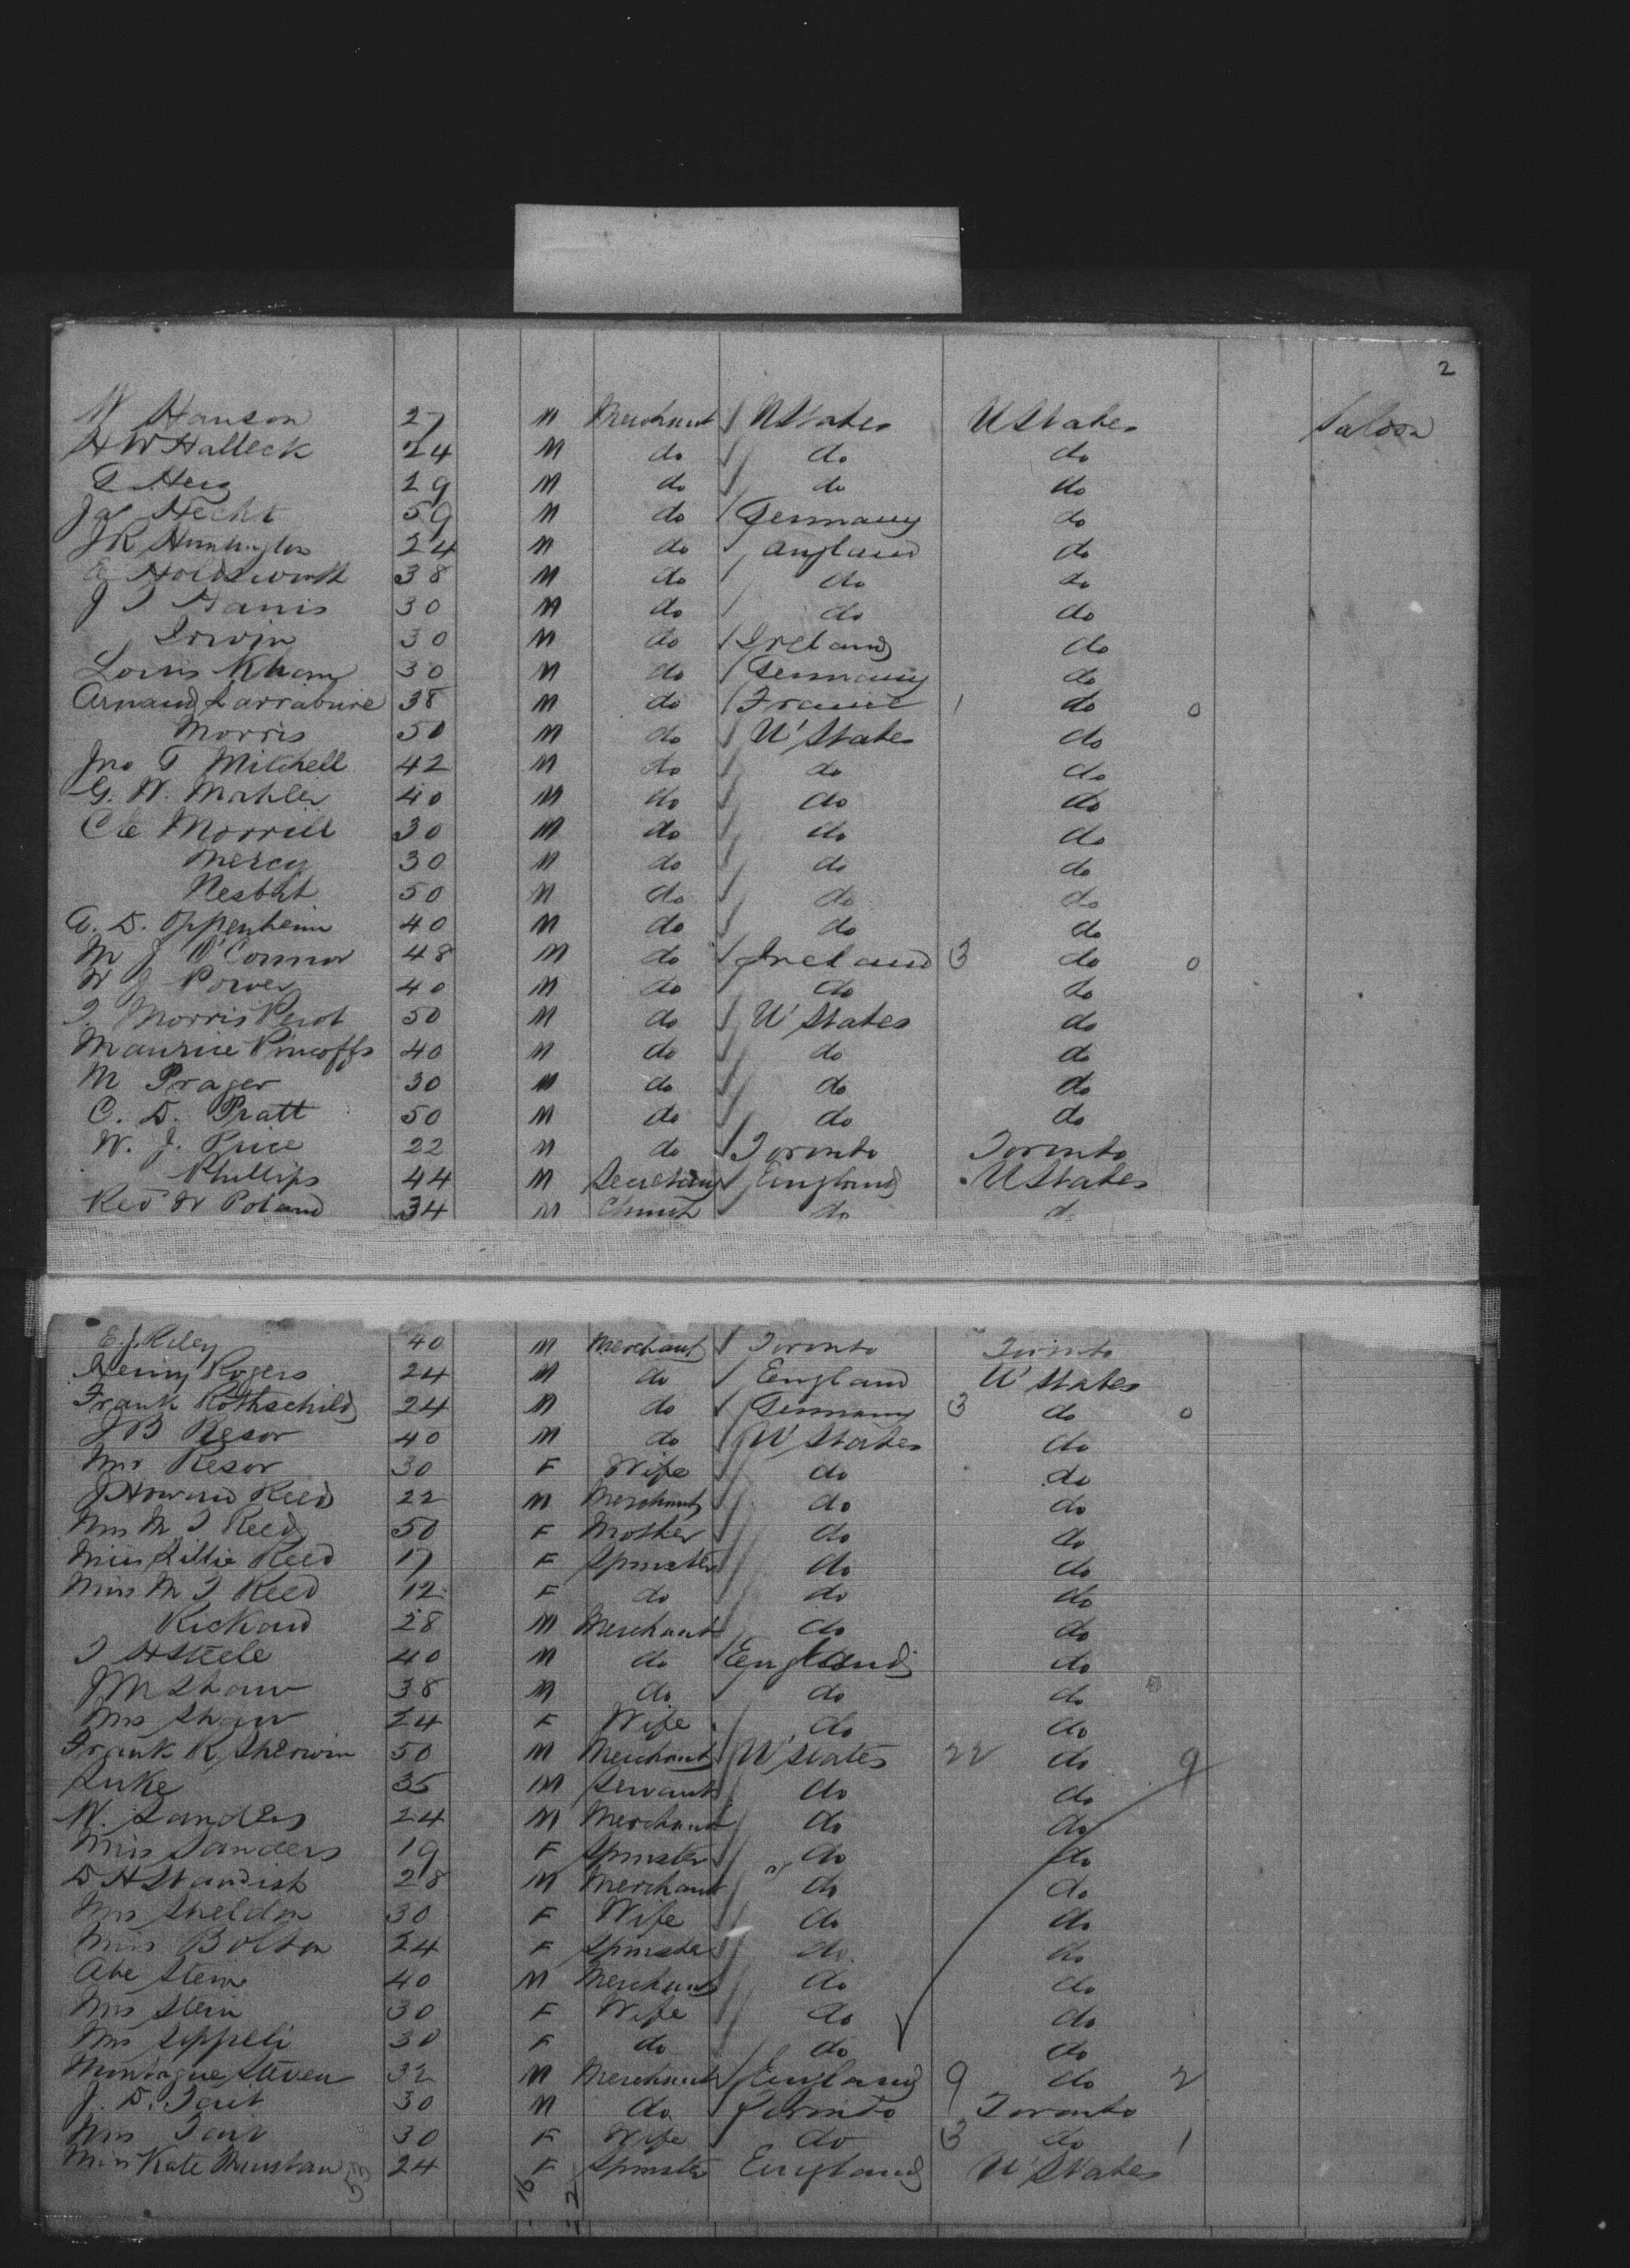 2
W Hanson 27 M Merchant U States U States Saloon
H W Halleck 24 M do do do
Herz 29 M do do do
Ja Hecht 59 M do Germany do
J R Huntington 24 M do England do
E Holdsworth 38 M do do do
J T Harris 30 M do do do
Irwin 30 M do Ireland do
Louis Kham 30 M do Germany do
Arnaud Larrabure 38 M do France 1 do 0
Morris 50 M do U States do
Jno T Mitchell 42 M do do do
G. W. Mahler 40 M do do do
Morrill 30 M do do do
Mercy 30 M do do do
Nesbit 50 M do do do
A. D. Oppenheim 40 M do do do
M J O'Connor 48 M do Ireland 3 do 0
W J Power 40 M do do do
T. Morris Perot 50 M do U States do
Maurice Pincoffs 40 M do do do
M Prager 30 M do do do
C. D. Pratt 50 M do do do
W. J. Price 22 M do Toronto Toronto
Phillips 44 M Secretary England U States
Rev W Poland 34 M Church do do
E. J. Riley 40 M Merchant Toronto Toronto
Henry Rogers 24 M do England U States
Frank Rothschild 24 M do Germany 3 do 0
J B Resor 40 M do U States do
Mrs Resor 30 F Wife do do
J Howard Reed 22 M Merchant do do
Mrs M T Reed 50 F Mother do do
Miss Lillie Reed 17 F Spinster do do
Miss M T Reed 12 F do do do
Rickard 28 M Merchant do do
T H Steele 40 M do England do
J M Shaw 38 M do do do
Mrs Shaw 24 F Wife do do
Frank R Sherwin 50 M Merchant U States 22 do 9
Luke 35 M Servant do do
W. Sanders 24 M Merchant do do
Miss Sanders 19 F Spinster do do
D H Standish 28 M Merchant do do
Mrs Sheldon 30 F Wife do do
Miss Bolton 24 F Spinster do do
Abe Stein 40 M Merchant do do
Mrs Stein 30 F Wife do do
Mrs Seppeli 30 F do do do
Montague Steven 32 M Merchant England 9 do 2
J. D. Tait 30 M do Toronto Toronto
Mrs Tait 30 F Wife do 3 do 1
Miss Kate 24 F Spinster England U States
53 16